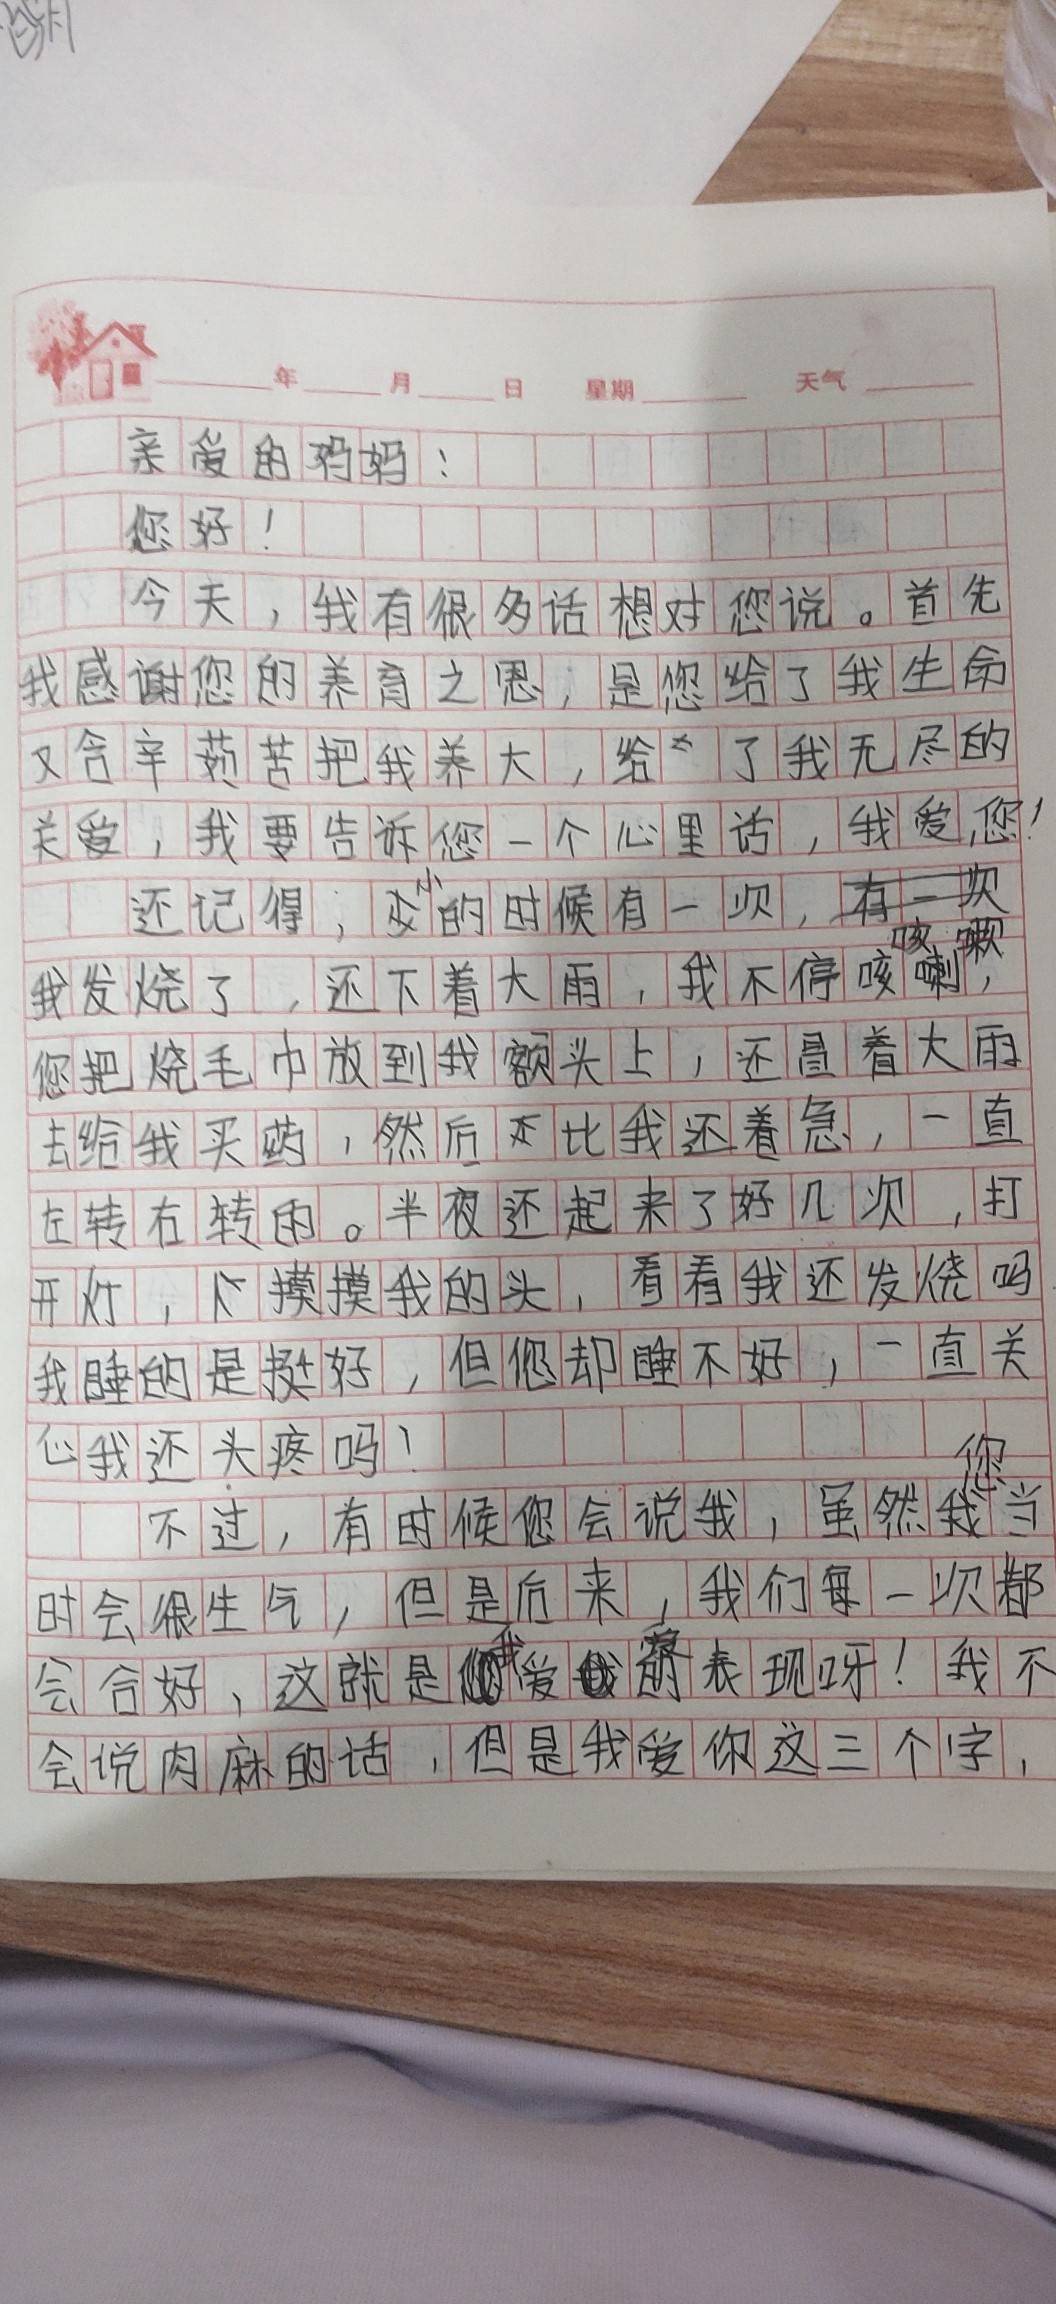 年 月 日 星期 天气
亲爱的妈妈：
您好！
今天，我有很多话想对您说。首先
我感谢您的养育之恩，是您给了我生命
又含辛茹苦把我养大，给了我无尽的
关爱，我要告诉您一个心里话，我爱您！
还记得，小的时候有一次，有一次
咳嗽
我发烧了，还下着大雨，我不停咳喇，
您把烧毛巾放到我额头上，还冒着大雨
去给我买药，然后比我还着急，一直
左转右转的。半夜还起来了好几次，打
开灯，摸摸我的头，看看我还发烧吗
我睡的是挺好，但您却睡不好，一直关
心我还头疼吗！
您
不过，有时候您会说我，虽然我当
时会很生气，但是后来，我们每一次都
会合好，这就是我爱的表现呀！我不
会说肉麻的话，但是我爱你这三个字，